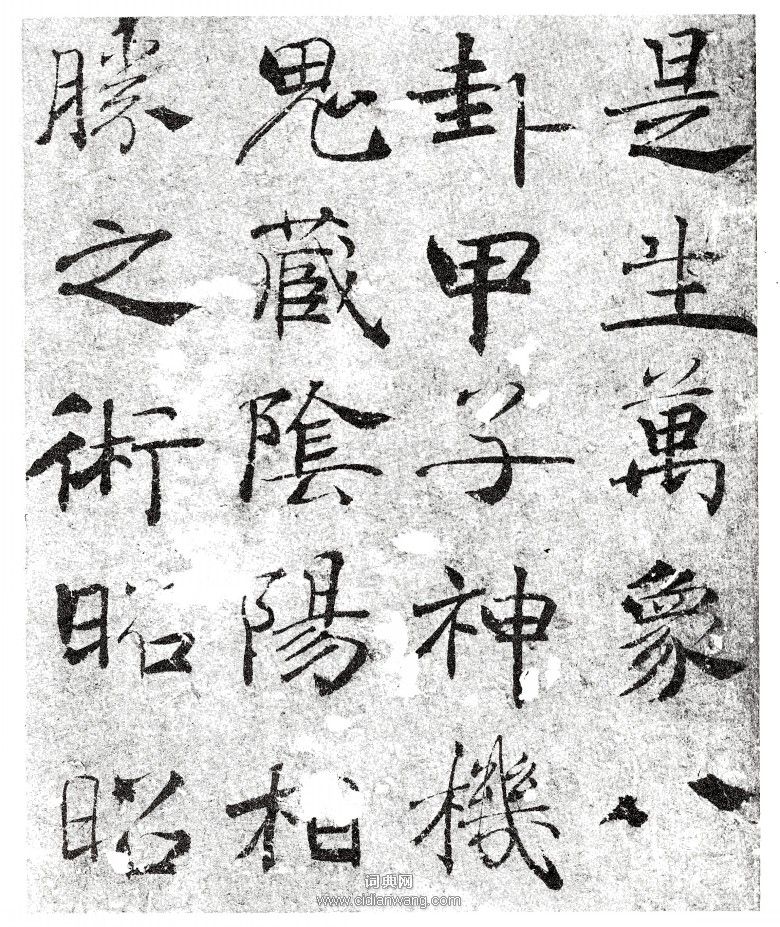 是生萬象八
卦甲子神機
鬼藏陰陽相
勝之術昭昭
词典网
www.cidianwang.com